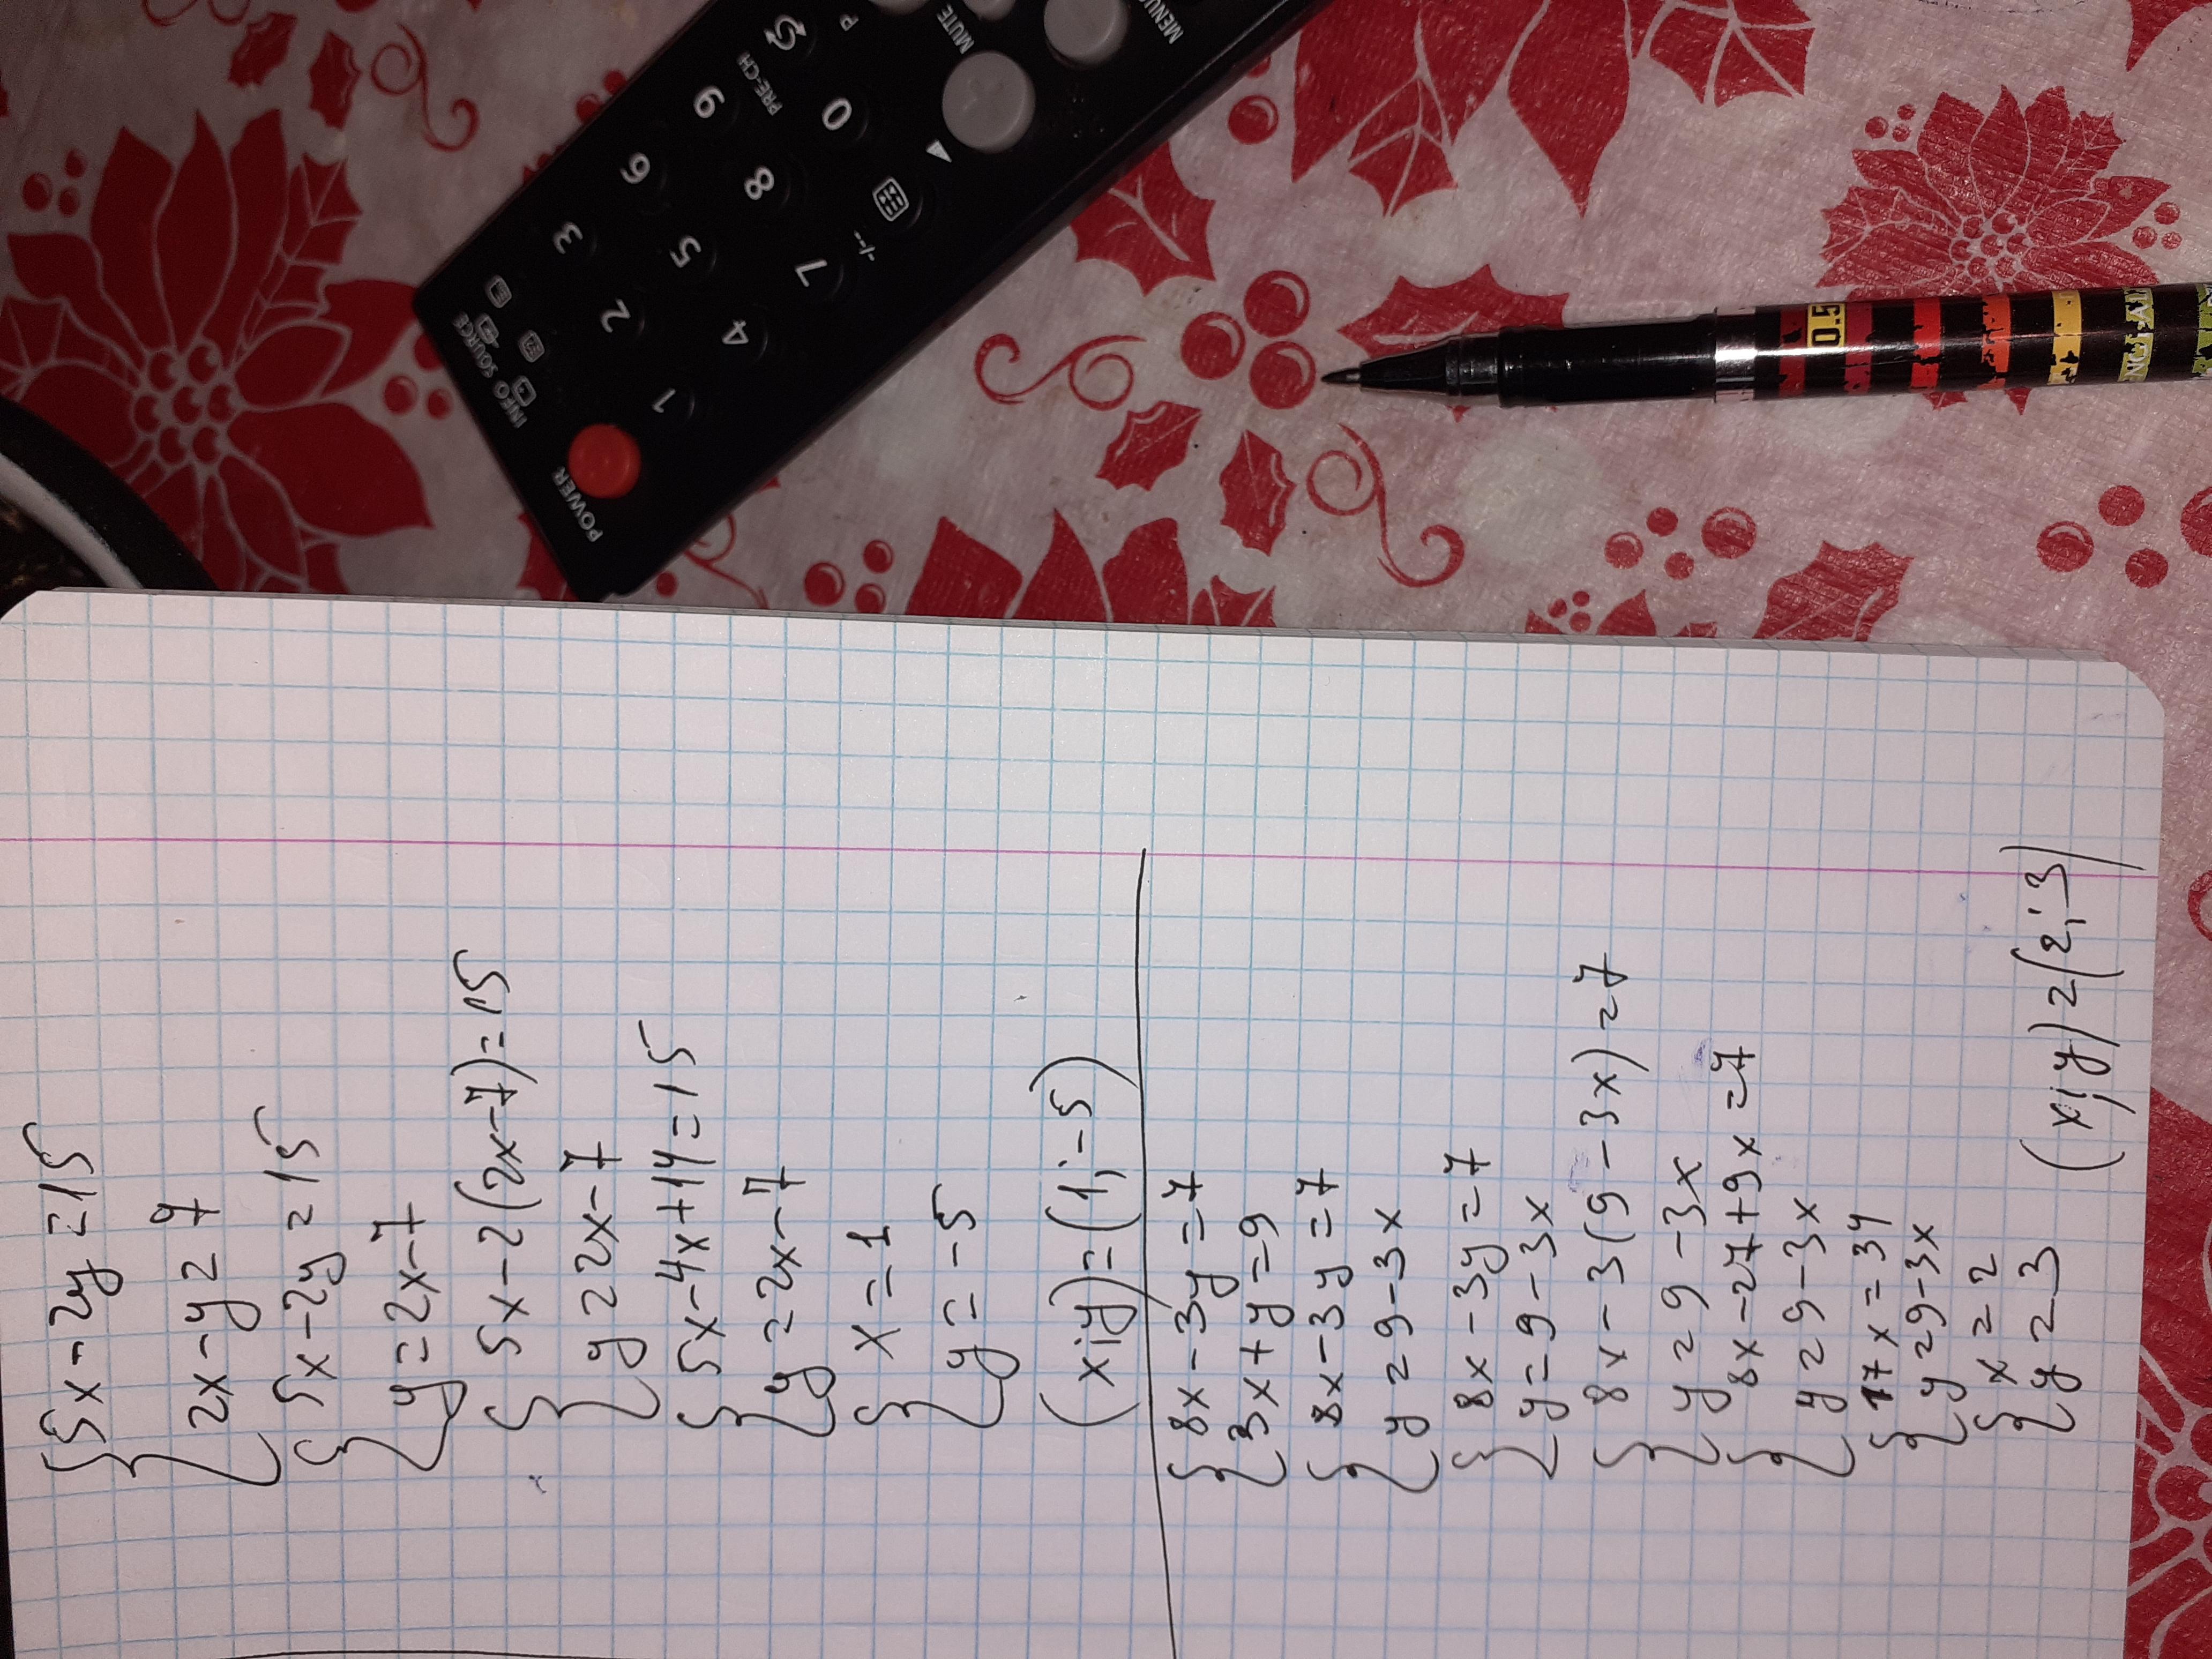 {5x-2y=15
2x-y=7
{5x-2y=15
y=2x-7
{5x-2(2x-7)=15
y=2x-7
{5x-4x+14=15
y=2x-7
{x=1
y=-5
(x;y)=(1;-5)
{8x-3y=7
3x+y=9
{8x-3y=7
y=9-3x
{8x-3y=7
y=9-3x
{8x-3(9-3x)=7
y=9-3x
{8x-27+9x=7
y=9-3x
{17x=34
y=9-3x
{x=2
y=3
(x;y)=(2;3)
POWER
INFO SOURCE
1 2 3
4 5 6
7 8 9
-/-- 0 PRE-CH
MUTE
P
MENU
0.5